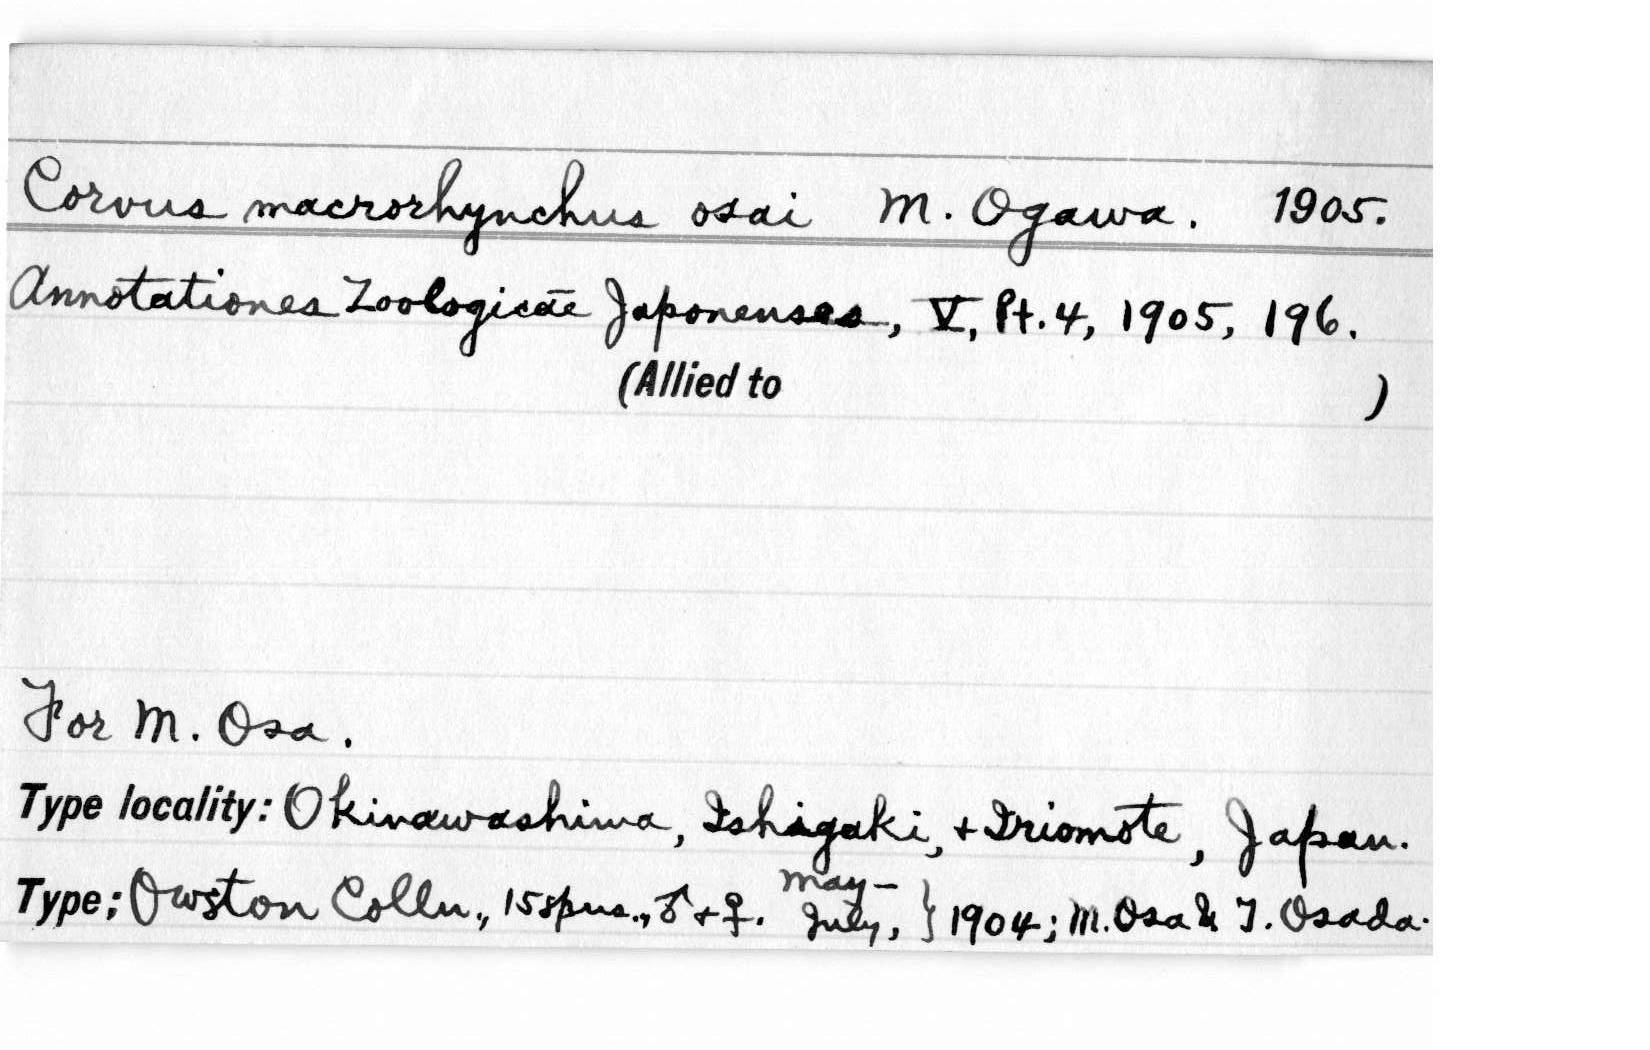 Corvus macrorhynchus osai M. Ogawa. 1905.
Annotationes Zoologicae Japonenses, V, Pt. 4, 1905, 196.
(Allied to )
For M. Osa.
Type locality: Okinawashima, Ishigaki, + Iriomote, Japan.
Type: Owston Colln., 15 spns., ♂ + ♀. May – July, } 1904; M. Osa & T. Osada.